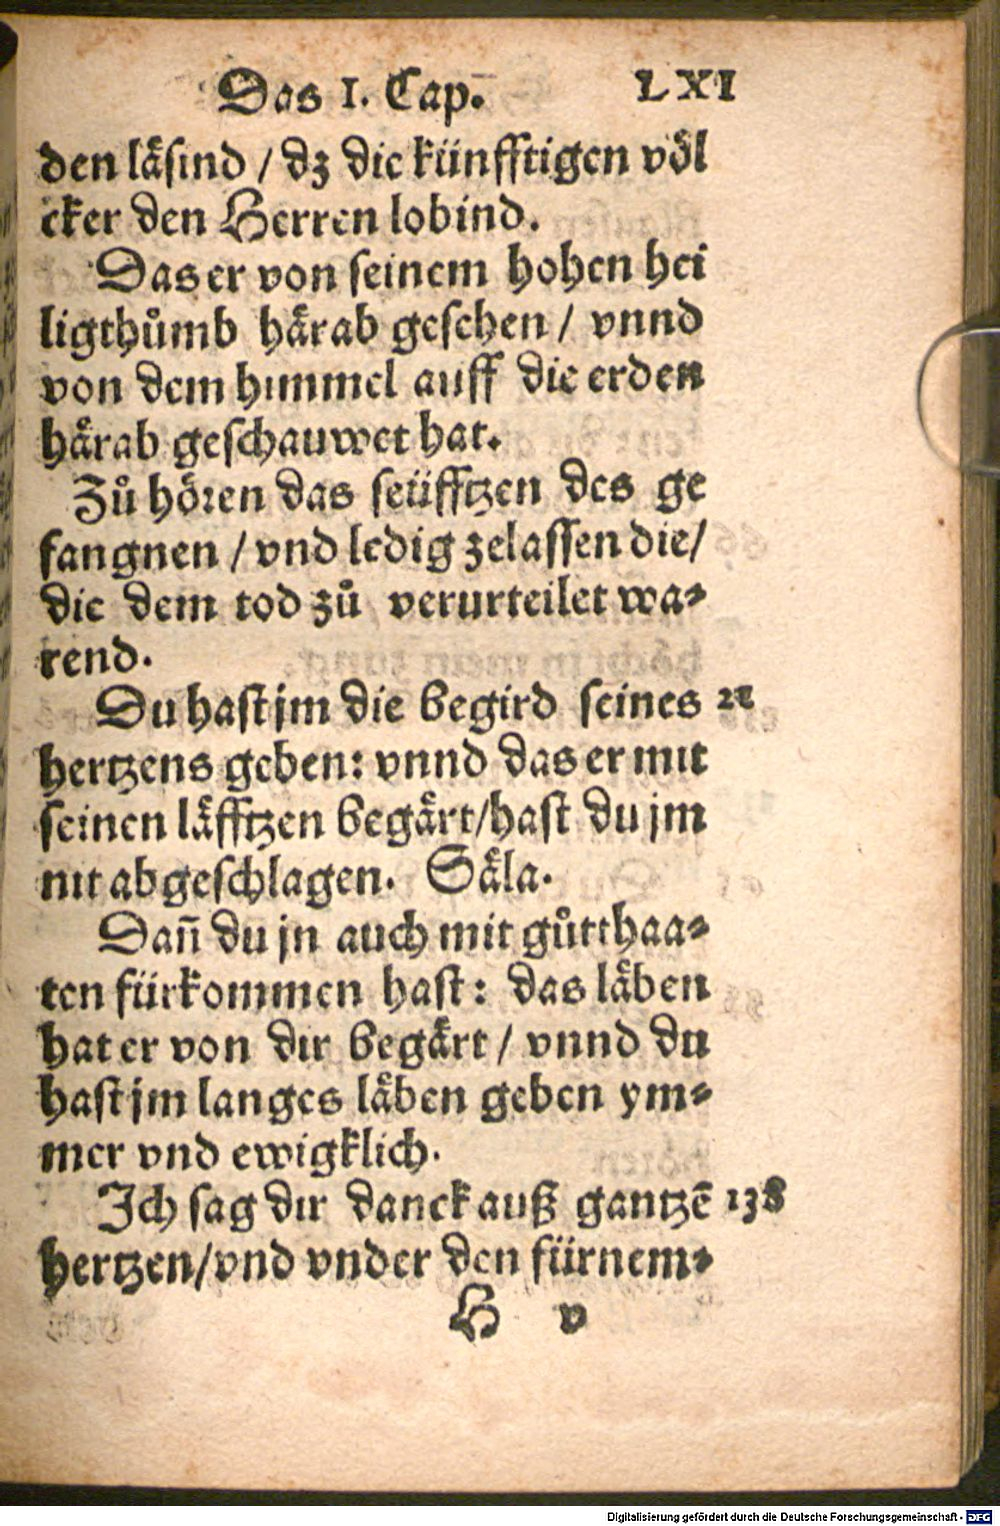 Das I. Cap. LXI
den läsind / dz die künfftigen völ
cker den Herren lobind.
Das er von seinem hohen hei
ligthůmb härab gesehen / vnnd
von dem himmel auff die erden
härab geschauwet hat.
Zů hören das seüfftzen des ge
fangnen / vnd ledig zelassen die /
die dem tod zů verurteilet wa⸗
rend.
Du hast jm die begird seines 21
hertzens geben: vnnd das er mit
seinen läfftzen begärt / hast du jm
nit abgeschlagen. Säla.
Dañ du jn auch mit gůtthaa⸗
ten fürkommen hast: das läben
hat er von dir begärt / vnnd du
hast jm langes läben geben ym⸗
mer vnd ewigklich.
Ich sag dir danck auß gantzē 138
hertzen / vnd vnder den fürnem⸗
H v
Digitalisierung gefördert durch die Deutsche Forschungsgemeinschaft - DFG